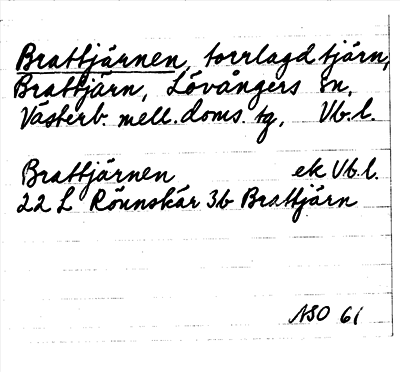 Brattjärnen, torrlagd tjärn,
Brattjärn, Lövångers sn,
Västerb. mell. doms. tg, Vb. l.
Brattjärnen ek Vb. l.
22 L Rönnskär 3b Brattjärn
NSO 61